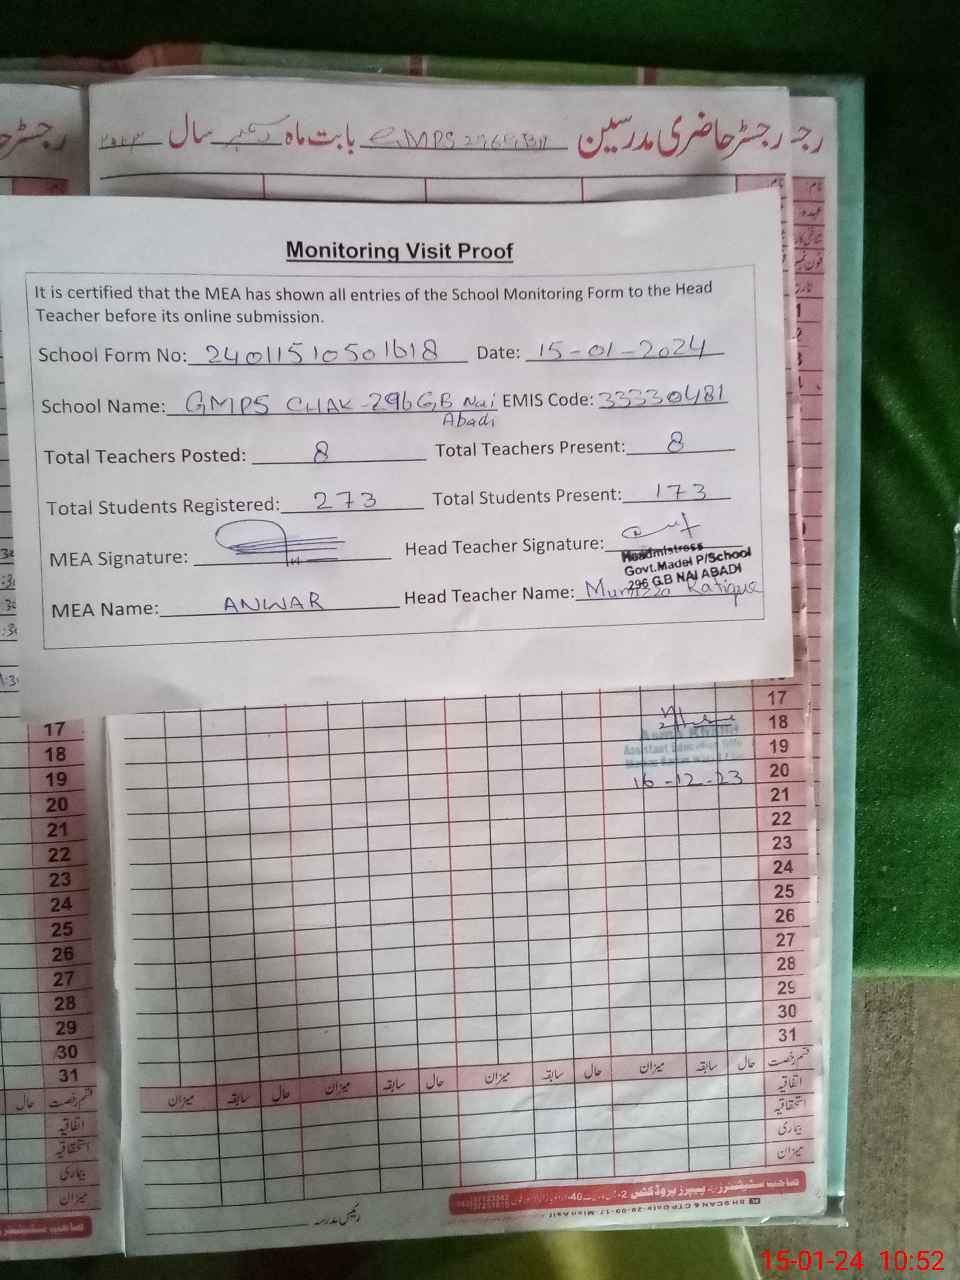 رجسٹر حاضری مدرسین بابت ماہ سال
رجـ
نام
عہدہ
Monitoring Visit Proof
It is certified that the MEA has shown all entries of the School Monitoring Form to the Head
Teacher before its online submission.
School Form No: 24011510501618 Date: 15-01-2024
School Name: GMPS CHAK-296 G,B Nai Abadi EMIS Code: 33330481
Total Teachers Posted: 8 Total Teachers Present: 8
Total Students Registered: 273 Total Students Present: 173
MEA Signature: Head Teacher Signature:
Headmistress
Govt.Madel P/School
296 G.B NAI ABADI
MEA Name: ANWAR Head Teacher Name:
17
18
19
20
21
22
23
24
25
26
27
28
29
30
31
17
18
19
20
21
22
23
24
25
26
27
28
29
30
31
16-12-23
قسم رخصت حال سابقہ میزان حال سابقہ میزان حال سابقہ میزان حال سابقہ میزان
اتفاقیہ
استحقاقیہ
بیماری
میزان
قسم رخصت حال
اتفاقیہ
استحقاقیہ
بیماری
میزان
رئیس مدرسہ
15-01-24 10:52